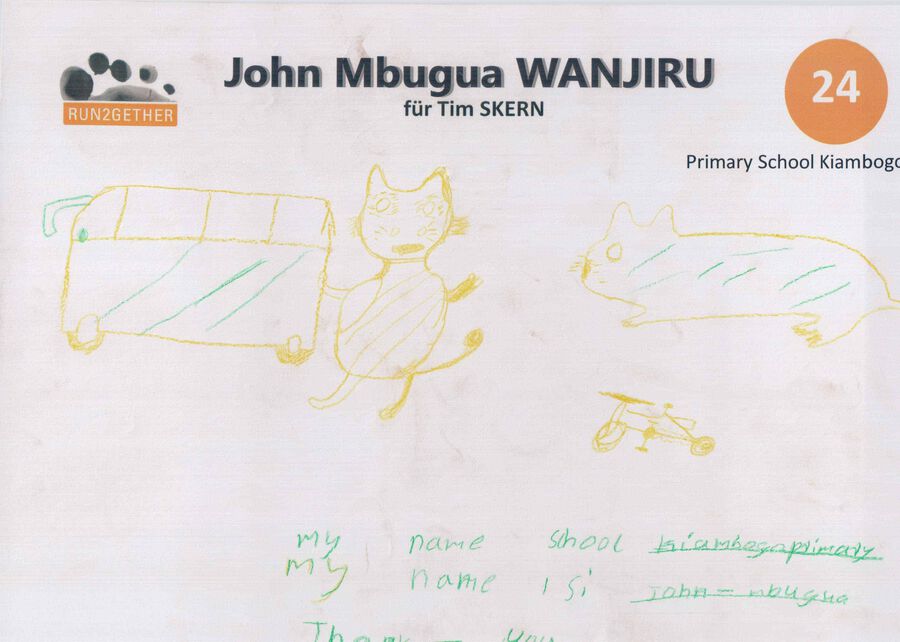 RUN2GETHER
John Mbugua WANJIRU
für Tim SKERN
24
Primary School Kiambogo
my name school kiambogoprimary
my name isi john - mbugua
Thank - you